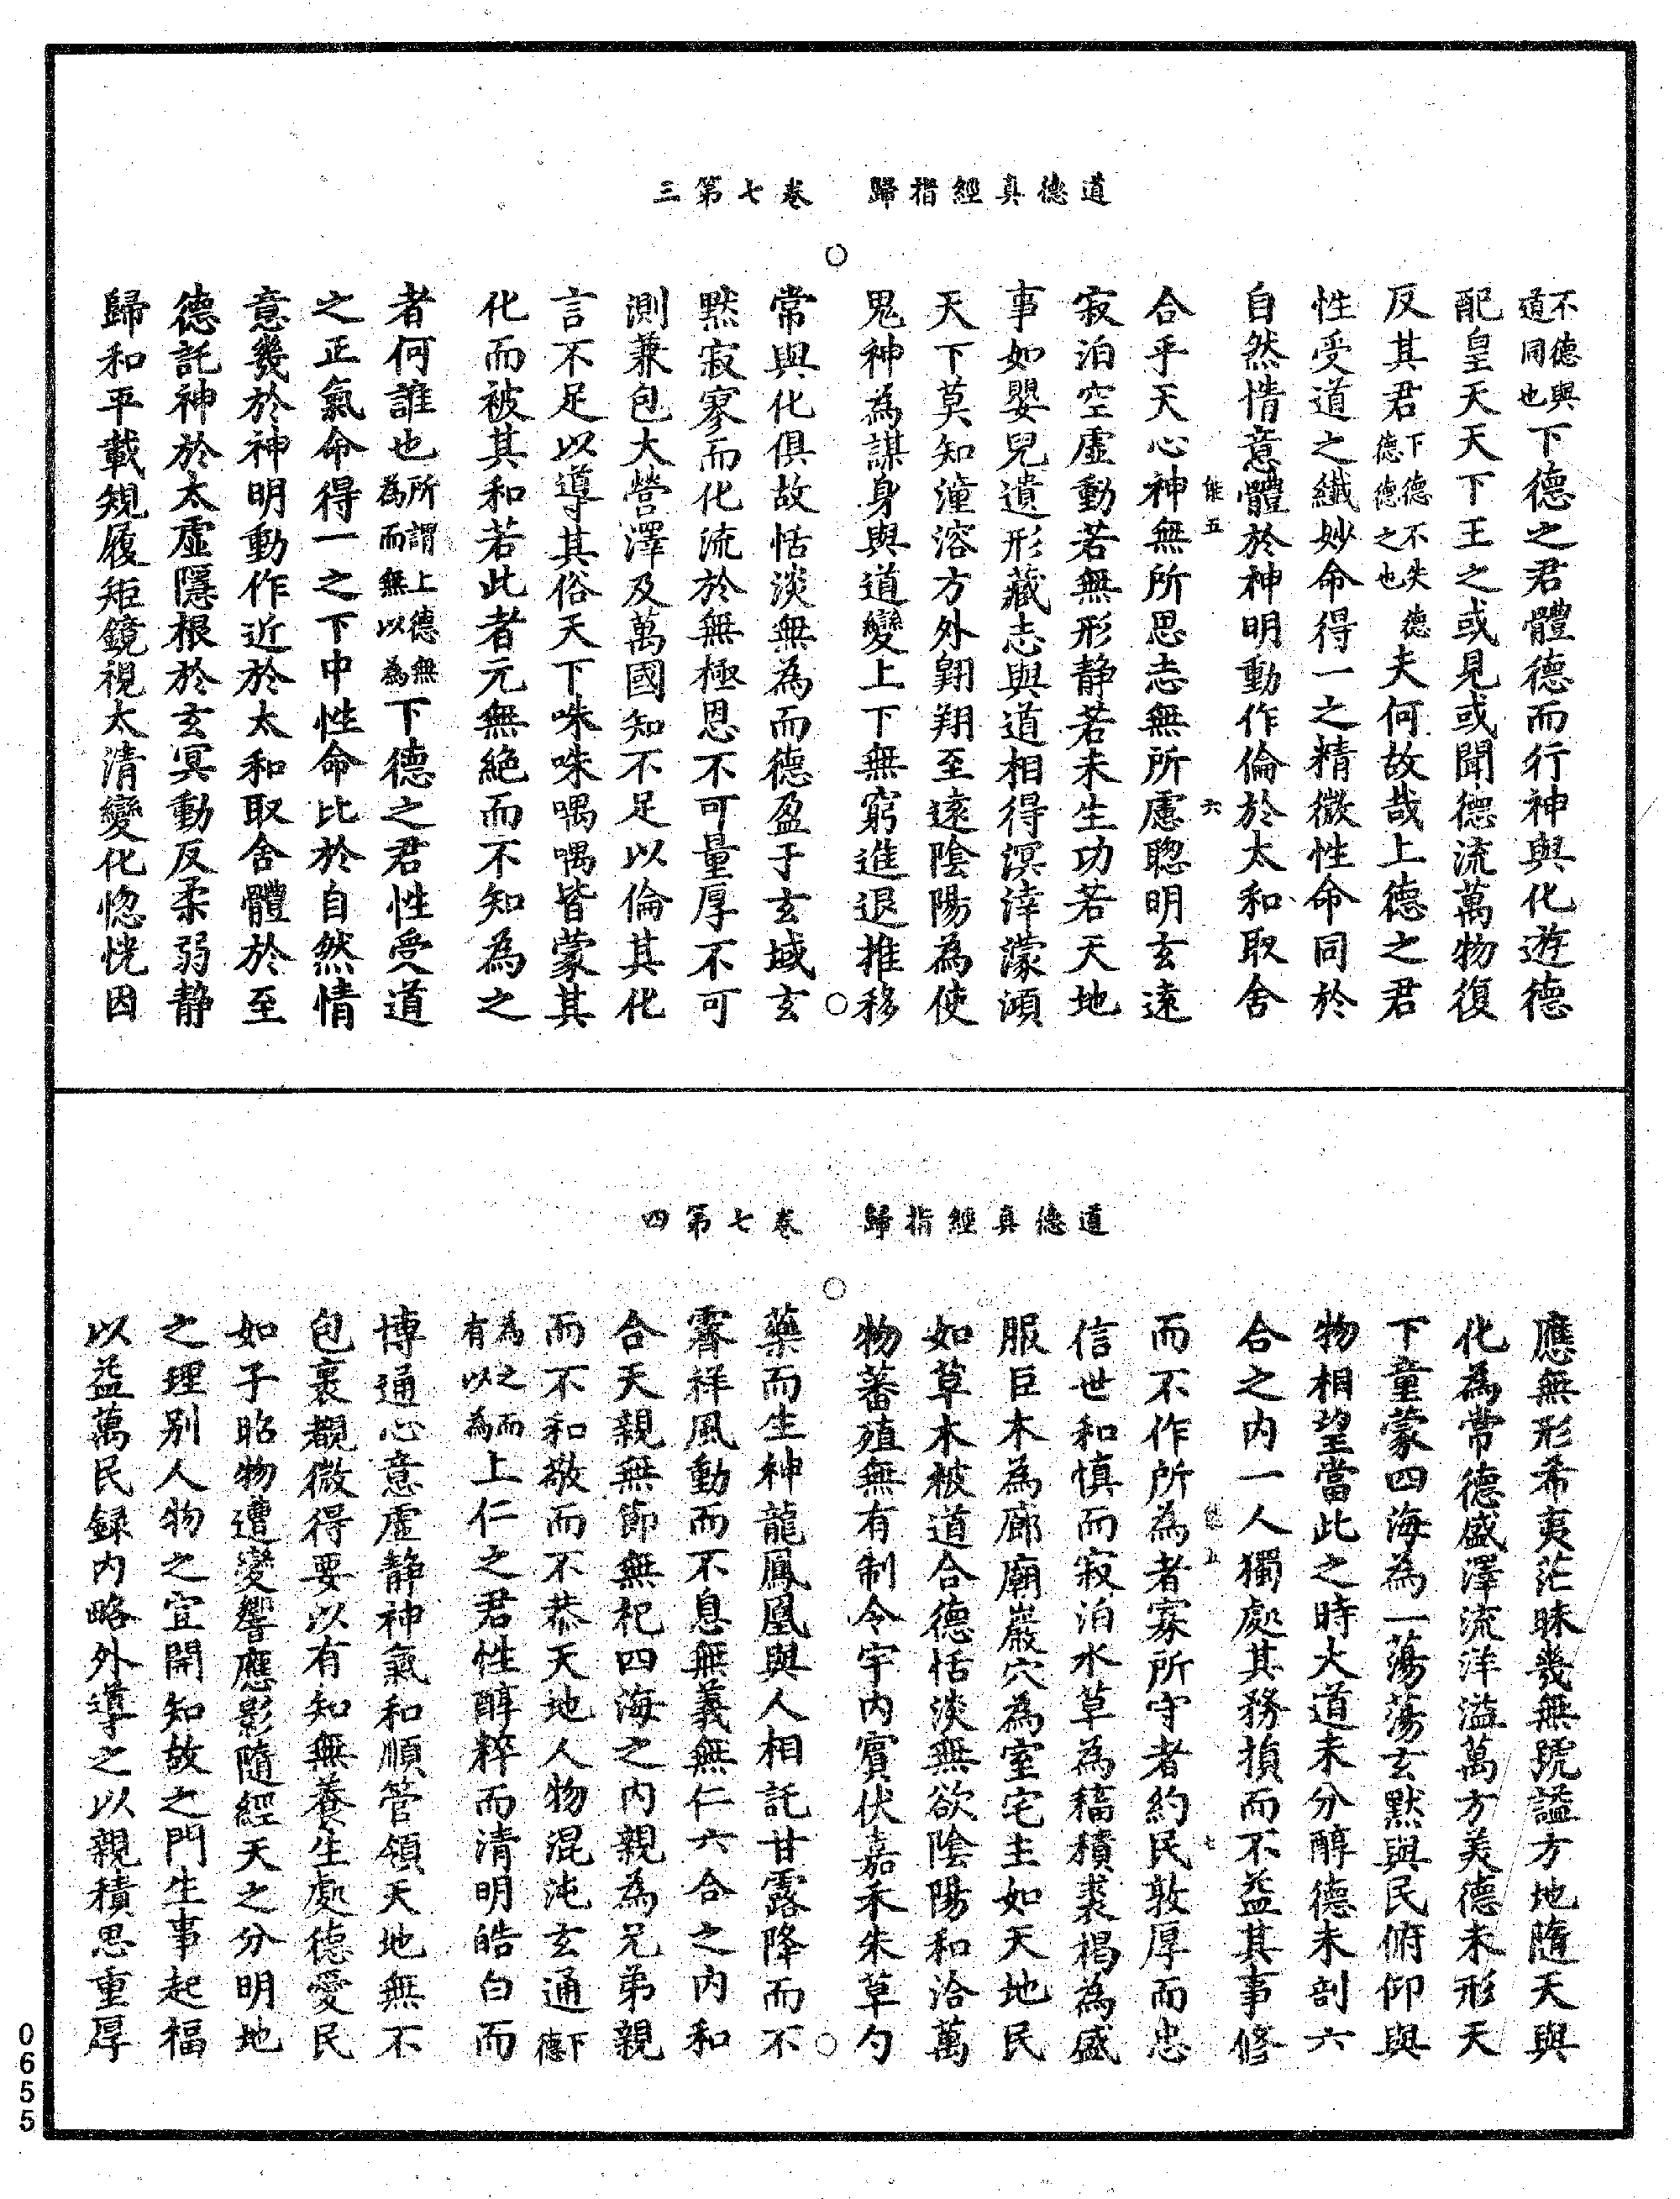 道德真經指歸　卷七第三
不德與道同也下德之君體德而行神與化遊德
配皇天天下王之或見或聞德流萬物復
反其君下德不失德德之也德夫何故哉上德之君
性受道之纖妙命得一之精微性命同於
自然情意體於神明動作倫於太和取舍
能五　六
合乎天心神無所思志無所慮聦明玄遠
寂泊空虛動若無形静若未生功若天地
事如嬰兒遺形藏志與道相得溟涬濛澒
天下莫知潼溶方外翱翔至遠陰陽為使
鬼神為謀身與道變上下無窮進退推移
常與化俱故恬淡無為而德盈于玄域玄
黙寂寥而化流於無極恩不可量厚不可
測兼包大營澤及萬國知不足以倫其化
言不足以導其俗天下咮咮喁喁皆蒙其
化而被其和若此者元無絶而不知為之
者何誰也所謂上德無為而無以為下德之君性受道
之正氣命得一之下中性命比於自然情
意幾於神明動作近於太和取舍體於至
德託神於太虛隱根於玄冥動反柔弱静
歸和平載規履矩鏡視太清變化惚恍因
道德真經指歸　卷七第四
應無形希夷茫昧幾無號謚方地隨天與
化為常德盛澤流洋溢萬方美德未形天
下童蒙四海為一蕩蕩玄黙與民俯仰與
物相望當此之時大道未分醇德未剖六
合之内一人獨處其務損而不益其事修
而不作所為者寡所守者約民敦厚而忠
信世和慎而寂泊水草為稸積裘褐為盛
服巨木為廊廟巖穴為室宅主如天地民
如草木被道合德恬淡無欲陰陽和洽萬
物蕃殖無有制令宇内賓伏嘉禾朱草勺
藥而生神龍鳳凰與人相託甘露降而不
霽祥風動而不息無義無仁六合之内和
合天親無節無祀四海之内親為兄弟親
而不和敬而不恭天地人物混沌玄通下德
為之而有以為上仁之君性醇粹而清明皓白而
博通心意虛静神氣和順管領天地無不
包裹覩微得要以有知無養生處德愛民
如子昭物遭變響應影隨經天之分明地
之理别人物之宜開知故之門生事起福
以益萬民録内略外導之以親積思重厚
0655